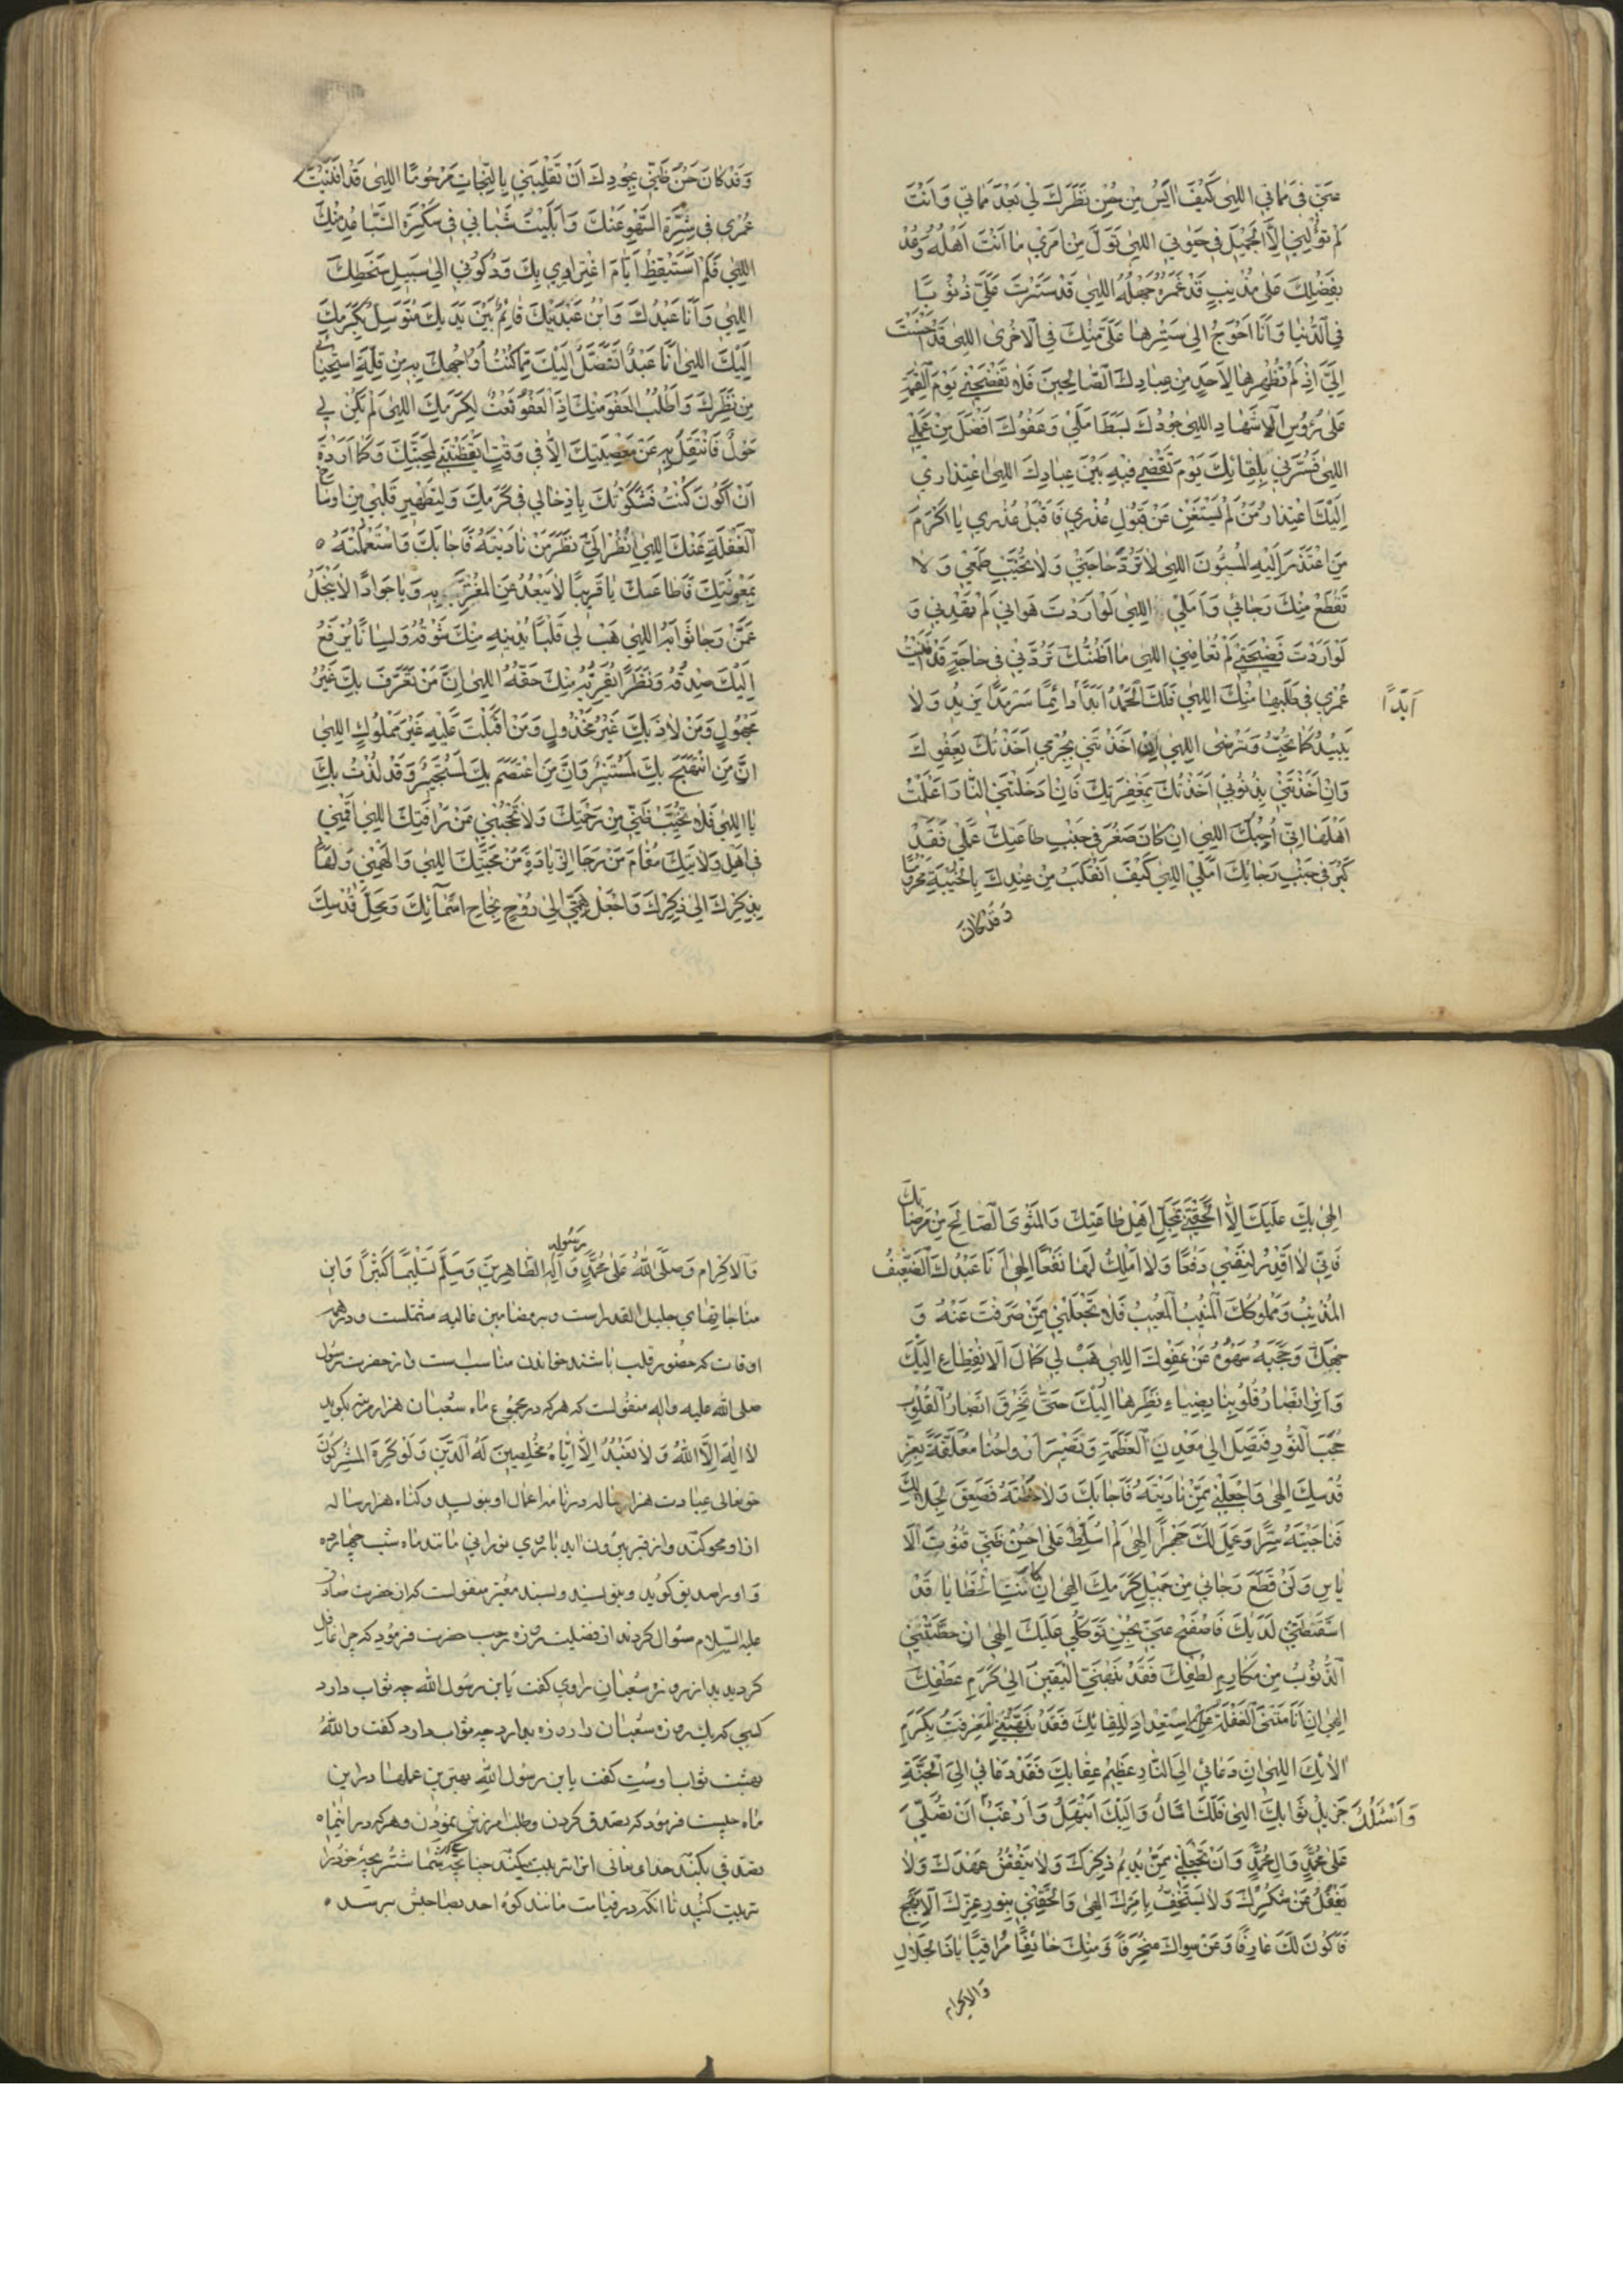 عَنّي في مَماتي اِلٰهي كَيْفَ ايَسُ مِنْ حُسْنِ نَظَرِكَ لي بَعْدَ مَماتي وَاَنْتَ
لَمْ تُوَلِّني اِلَّا الْجَميلَ في حَيٰوتي اِلٰهي تَوَلَّ مِنْ اَمْري ما اَنْتَ اَهْلُهُ وَعُدْ
بِفَضْلِكَ عَلٰى مُذْنِبٍ قَدْ غَمَرَهُ جَهْلُهُ اِلٰهي قَدْ سَتَرْتَ عَلَيَّ ذُنُوبًا
فِي الدُّنْيا وَاَنَا اَحْوَجُ اِلٰى سَتْرِها عَلَيَّ مِنْكَ فِي الْاُخْرٰى اِلٰهي قَدْ اَحْسَنْتَ
اِلَيَّ اِذْ لَمْ تُظْهِرْها لِاَحَدٍ مِنْ عِبادِكَ الصّالِحينَ فَلا تَفْضَحْني يَوْمَ الْقِيٰمَةِ
عَلٰى رُؤُسِ الْاَشْهادِ اِلٰهي جُودُكَ بَسَطَ اَمَلي وَعَفْوُكَ اَفْضَلُ مِنْ عَمَلي
اِلٰهي فَسُرَّني بِلِقائِكَ يَوْمَ تَقْضي فيهِ بَيْنَ عِبادِكَ اِلٰهي اعْتِذاري
اِلَيْكَ اعْتِذارُ مَنْ لَمْ يَسْتَغْنِ عَنْ قَبُولِ عُذْرِهِ فَاقْبَلْ عُذْري يا اَكْرَمَ
مَنِ اعْتَذَرَ اِلَيْهِ الْمُسيئُونَ اِلٰهي لا تَرُدَّ حاجَتي وَلا تُخَيِّبْ طَمَعي وَلا
تَقْطَعْ مِنْكَ رَجائي وَاَمَلي اِلٰهي لَوْ اَرَدْتَ هَواني لَمْ تَهْدِني وَ
لَوْ اَرَدْتَ فَضيحَتي لَمْ تُعافِني اِلٰهي ما اَظُنُّكَ تَرُدُّني في حاجَةٍ قَدْ اَفْنَيْتُ
عُمْري في طَلَبِها مِنْكَ اِلٰهي فَلَكَ الْحَمْدُ اَبَدًا دائِمًا سَرْمَدًا يَزيدُ وَلا
اَبَدًا
يَبيدُ كَما تُحِبُّ وَتَرْضٰى اِلٰهي اِنْ اَخَذْتَني بِجُرْمي اَخَذْتُكَ بِعَفْوِكَ
وَاِنْ اَخَذْتَني بِذُنُوبي اَخَذْتُكَ بِمَغْفِرَتِكَ فَاِنْ اَدْخَلْتَنِي النّارَ اَعْلَمْتُ
اَهْلَها اَنّي اُحِبُّكَ اِلٰهي اِنْ كانَ صَغُرَ في جَنْبِ طاعَتِكَ عَمَلي فَقَدْ
كَبُرَ في جَنْبِ رَجائِكَ اَمَلي اِلٰهي كَيْفَ اَنْقَلِبُ مِنْ عِنْدِكَ بِالْخَيْبَةِ مَحْرُومًا
وَقَدْ كانَ
وَقَدْ كانَ حُسْنُ ظَنّي بِجُودِكَ اَنْ تَقْلِبَني بِالنَّجاتِ مَرْحُومًا اِلٰهي قَدْ اَفْنَيْتُ
عُمْري في شِرَّةِ السَّهْوِ عَنْكَ وَاَبْلَيْتُ شَبابي في سَكْرَةِ التَّباعُدِ مِنْكَ
اِلٰهي فَلَمْ اَسْتَيْقِظْ اَيّامَ اغْتِراري بِكَ وَرُكُوني اِلٰى سَبيلِ سَخَطِكَ
اِلٰهي وَاَنَا عَبْدُكَ وَابْنُ عَبْدَيْكَ قائِمٌ بَيْنَ يَدَيْكَ مُتَوَسِّلٌ بِكَرَمِكَ
اِلَيْكَ اِلٰهي اَنَا عَبْدٌ اَتَنَصَّلُ اِلَيْكَ مِمّا كُنْتُ اُواجِهُكَ بِهِ مِنْ قِلَّةِ اسْتِحْيائي
مِنْ نَظَرِكَ وَاَطْلُبُ الْعَفْوَ مِنْكَ اِذِ الْعَفْوُ نَعْتٌ لِكَرَمِكَ اِلٰهي لَمْ يَكُنْ لي
حَوْلٌ فَانْتَقِلَ بِهِ عَنْ مَعْصِيَتِكَ اِلَّا في وَقْتٍ اَيْقَظْتَني لِمَحَبَّتِكَ وَكَما اَرَدْتَ
اَنْ اَكُونَ كُنْتُ فَشَكَرْتُكَ بِاِدْخالي في كَرَمِكَ وَلِتَطْهيرِ قَلْبي مِنْ اَوْساخِ
الْغَفْلَةِ عَنْكَ اِلٰهي اُنْظُرْ اِلَيَّ نَظَرَ مَنْ نادَيْتَهُ فَاَجابَكَ وَاسْتَعْمَلْتَهُ ٥
بِمَعُونَتِكَ فَاَطاعَكَ يا قَريبًا لا يَبْعُدُ عَنِ الْمُغْتَرِّ بِهِ وَيا جَوادًا لا يَبْخَلُ
عَمَّنْ رَجا ثَوابَهُ اِلٰهي هَبْ لي قَلْبًا يُدْنيهِ مِنْكَ شَوْقُهُ وَلِسانًا يُرْفَعُ
اِلَيْكَ صِدْقُهُ وَنَظَرًا يُقَرِّبُهُ مِنْكَ حَقُّهُ اِلٰهي اِنَّ مَنْ تَعَرَّفَ بِكَ غَيْرُ
مَجْهُولٍ وَمَنْ لاذَ بِكَ غَيْرُ مَخْذُولٍ وَمَنْ اَقْبَلْتَ عَلَيْهِ غَيْرُ مَمْلُوكٍ اِلٰهي
اِنَّ مَنِ انْتَهَجَ بِكَ لَمُسْتَنيرٌ وَاِنَّ مَنِ اعْتَصَمَ بِكَ لَمُسْتَجيرٌ وَقَدْ لُذْتُ بِكَ
يا اِلٰهي فَلا تُخَيِّبْ ظَنّي مِنْ رَحْمَتِكَ وَلا تَحْجُبْني عَنْ رَافَتِكَ اِلٰهي اَقِمْني
في اَهْلِ وِلايَتِكَ مُقامَ مَنْ رَجَا الزِّيادَةَ مِنْ مَحَبَّتِكَ اِلٰهي وَاَلْهِمْني وَلَهًا
بِذِكْرِكَ اِلٰى ذِكْرِكَ وَاجْعَلْ هِمَّتي اِلٰى رَوْحِ نَجاحِ اَسْمائِكَ وَمَحَلِّ قُدْسِكَ
اِلٰهي بِكَ عَلَيْكَ اِلّا اَلْحَقْتَني بِمَحَلِّ اَهْلِ طاعَتِكَ وَالْمَثْوَى الصّالِحِ مِنْ مَرْضاتِكَ
فَاِنّي لا اَقْدِرُ لِنَفْسي دَفْعًا وَلا اَمْلِكُ لَها نَفْعًا اِلٰهي اَنَا عَبْدُكَ الضَّعيفُ
الْمُذْنِبُ وَمَمْلُوكُكَ الْمُنيبُ الْمَعيبُ فَلا تَجْعَلْني مِمَّنْ صَرَفْتَ عَنْهُ وَ
جْهَكَ وَحَجَبَهُ سَهْوُهُ عَنْ عَفْوِكَ اِلٰهي هَبْ لي كَمالَ الْاِنْقِطاعِ اِلَيْكَ
وَاَنِرْ اَبْصارَ قُلُوبِنا بِضِياءِ نَظَرِها اِلَيْكَ حَتّٰى تَخْرِقَ اَبْصارُ الْقُلُوبِ
حُجُبَ النُّورِ فَتَصِلَ اِلٰى مَعْدِنِ الْعَظَمَةِ وَتَصيرَ اَرْواحُنا مُعَلَّقَةً بِعِزِّ
قُدْسِكَ اِلٰهي وَاجْعَلْني مِمَّنْ نادَيْتَهُ فَاَجابَكَ وَلاحَظْتَهُ فَصَعِقَ لِجَلالِكَ
فَناجَيْتَهُ سِرًّا وَعَمِلَ لَكَ جَهْرًا اِلٰهي لَمْ اُسَلِّطْ عَلٰى حُسْنِ ظَنّي قُنُوتَ الْاَ
ياسِ وَلَنْ قَطَعَ رَجائي مِنْ جَميلِ كَرَمِكَ اِلٰهي اِنْ كانَتِ الْخَطايا قَدْ
اَسْقَطَتْني لَدَيْكَ فَاصْفَحْ عَنّي بِحُسْنِ تَوَكُّلي عَلَيْكَ اِلٰهي اِنْ حَطَّتْني
الذُّنُوبُ مِنْ مَكارِمِ لُطْفِكَ فَقَدْ نَبَّهَنِي الْيَقينُ اِلٰى كَرَمِ عَطْفِكَ
اِلٰهي اِنْ اَنامَتْنِي الْغَفْلَةُ عَنِ الْاِسْتِعْدادِ لِلِقائِكَ فَقَدْ نَبَّهَتْنِي الْمَعْرِفَةُ بِكَرَمِ
الائِكَ اِلٰهي اِنْ دَعاني اِلَى النّارِ عَظيمُ عِقابِكَ فَقَدْ دَعاني اِلَى الْجَنَّةِ
جَزيلُ ثَوابِكَ اِلٰهي فَلَكَ اَسْاَلُ وَاِلَيْكَ اَبْتَهِلُ وَاَرْغَبُ اَنْ تُصَلِّيَ
وَاَسْئَلُكَ
عَلٰى مُحَمَّدٍ وَالِ مُحَمَّدٍ وَاَنْ تَجْعَلَني مِمَّنْ يُديمُ ذِكْرَكَ وَلا يَنْقُضُ عَهْدَكَ وَلا
يَغْفُلُ عَنْ شُكْرِكَ وَلا يَسْتَخِفُّ بِاَمْرِكَ اِلٰهي وَاَلْحِقْني بِنُورِ عِزِّكَ الْاَبْهَجِ
فَاَكُونَ لَكَ عارِفًا وَعَنْ سِواكَ مُنْحَرِفًا وَمِنْكَ خائِفًا مُراقِبًا يا ذَا الْجَلالِ
وَالْاِكْرام
وَالْاِكْرام وَصَلَّى اللّٰهُ عَلٰى مُحَمَّدٍ رَسُولِهِ وَآلِهِ الطّاهِرينَ وَسَلَّمَ تَسْليمًا كَثيرًا وَاین
مناجاتهای جلیل القدر است وبر مضامین عالیه مشتملست ودر همه
اوقات که حضور قلب باشد خواندن مناسب است واز حضرت رسول
صلی الله علیه واله منقولست که هرکه در مجموع ماه شعبان هزار مرتبه بکوید
لا اِلٰهَ اِلَّا اللّٰهُ وَلا نَعْبُدُ اِلّا اِيّاهُ مُخْلِصينَ لَهُ الدّينَ وَلَوْ كَرِهَ الْمُشْرِكُونَ
حق تعالی عبادت هزار ساله در نامه اعمال او بنویسد وکناه هزار ساله
از او محو کند واز قبر بیرون اید با روی نورانی مانند ماه شب چهارده
و او را صدیق کوید وبنویسند وبسند معتبر منقولست که از حضرت صادق
علیه السلام سئوال کردند از فضیلت روزه رجب حضرت فرمود که چرا غافل
کردیدید از روزه شعبان راوی کفت یابن رسول الله چه ثواب دارد
کسی که یک روزه شعبان را روزه بدارد چه ثواب دارد کفت والله
بهشت ثواب اوست کفت یابن رسول الله بهترین عملها در این
ماه چیست فرمود که تصدق کردن وطلب امرزش نمودن وهرکه در اینماه
تصدقی بکند خدای تعالی انرا تربیت میکند چنانچه شما شتر بچه خود را
تربیت کنید تا انکه در قیامت مانند کوه احد بصاحبش برسد ٥